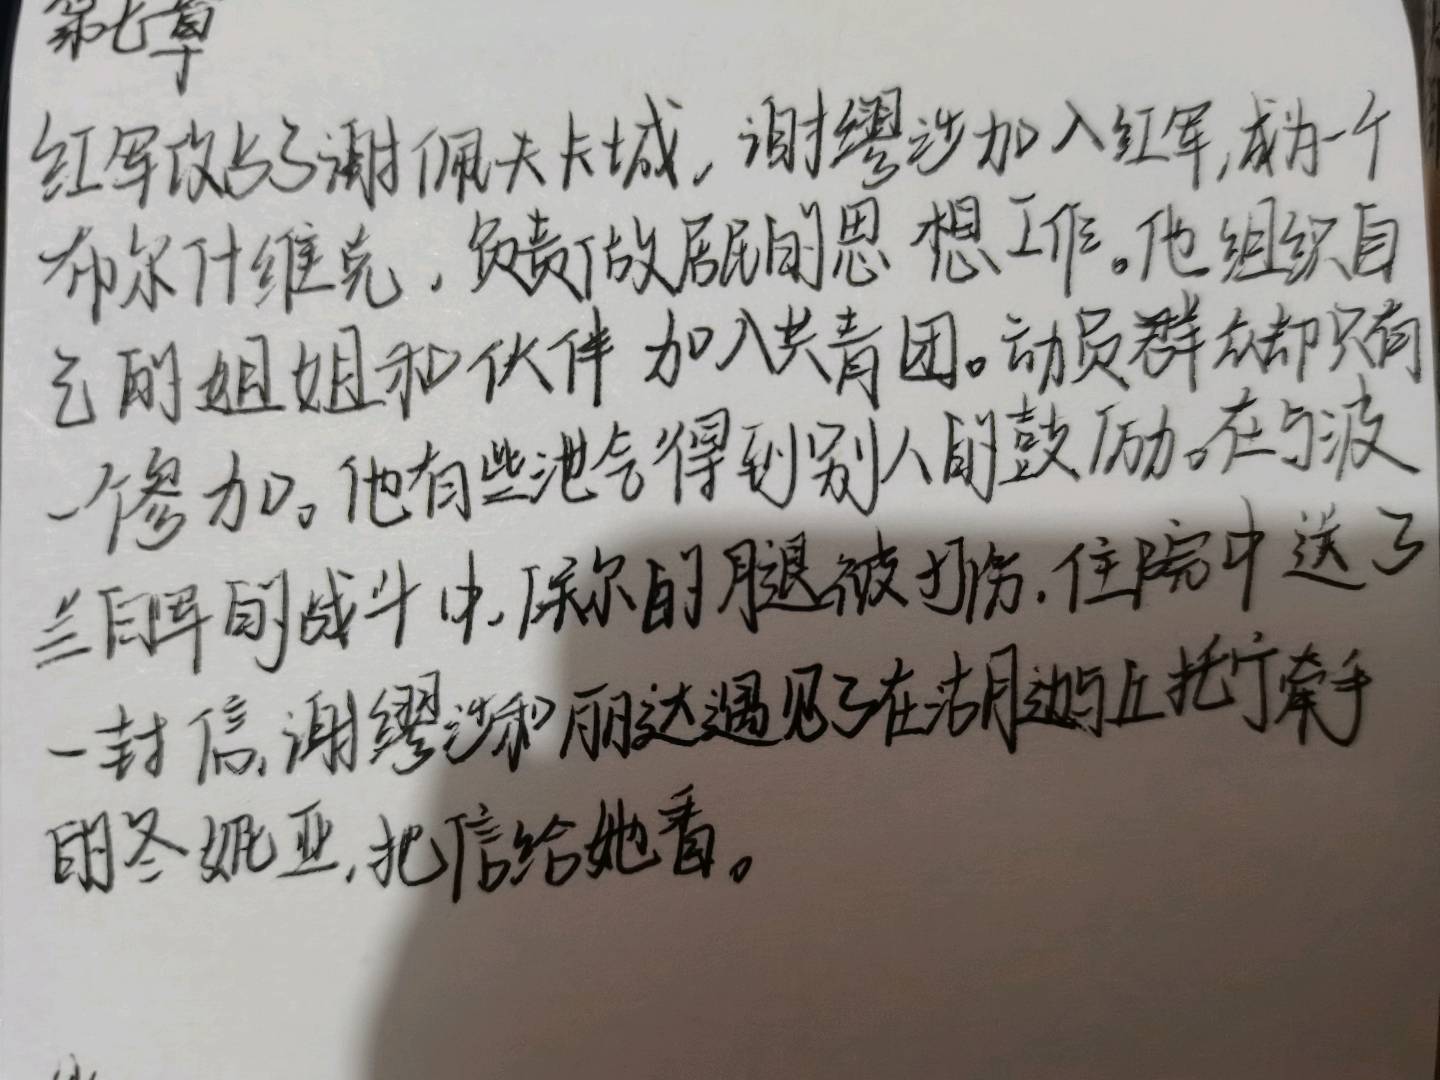 第七章
红军攻占了谢佩夫卡城，谢缪沙加入红军，成为一个
布尔什维克，负责做居民的思想工作。他组织自
己的姐姐和伙伴加入共青团。动员群众却只有
一个参加。他有些泄气得到别人的鼓励。在与波
兰白军的战斗中，保尔的腿被打伤，住院中送了
一封信，谢缪沙和丽达遇见了在湖边与丘托宁牵手
的冬妮亚，把信给她看。